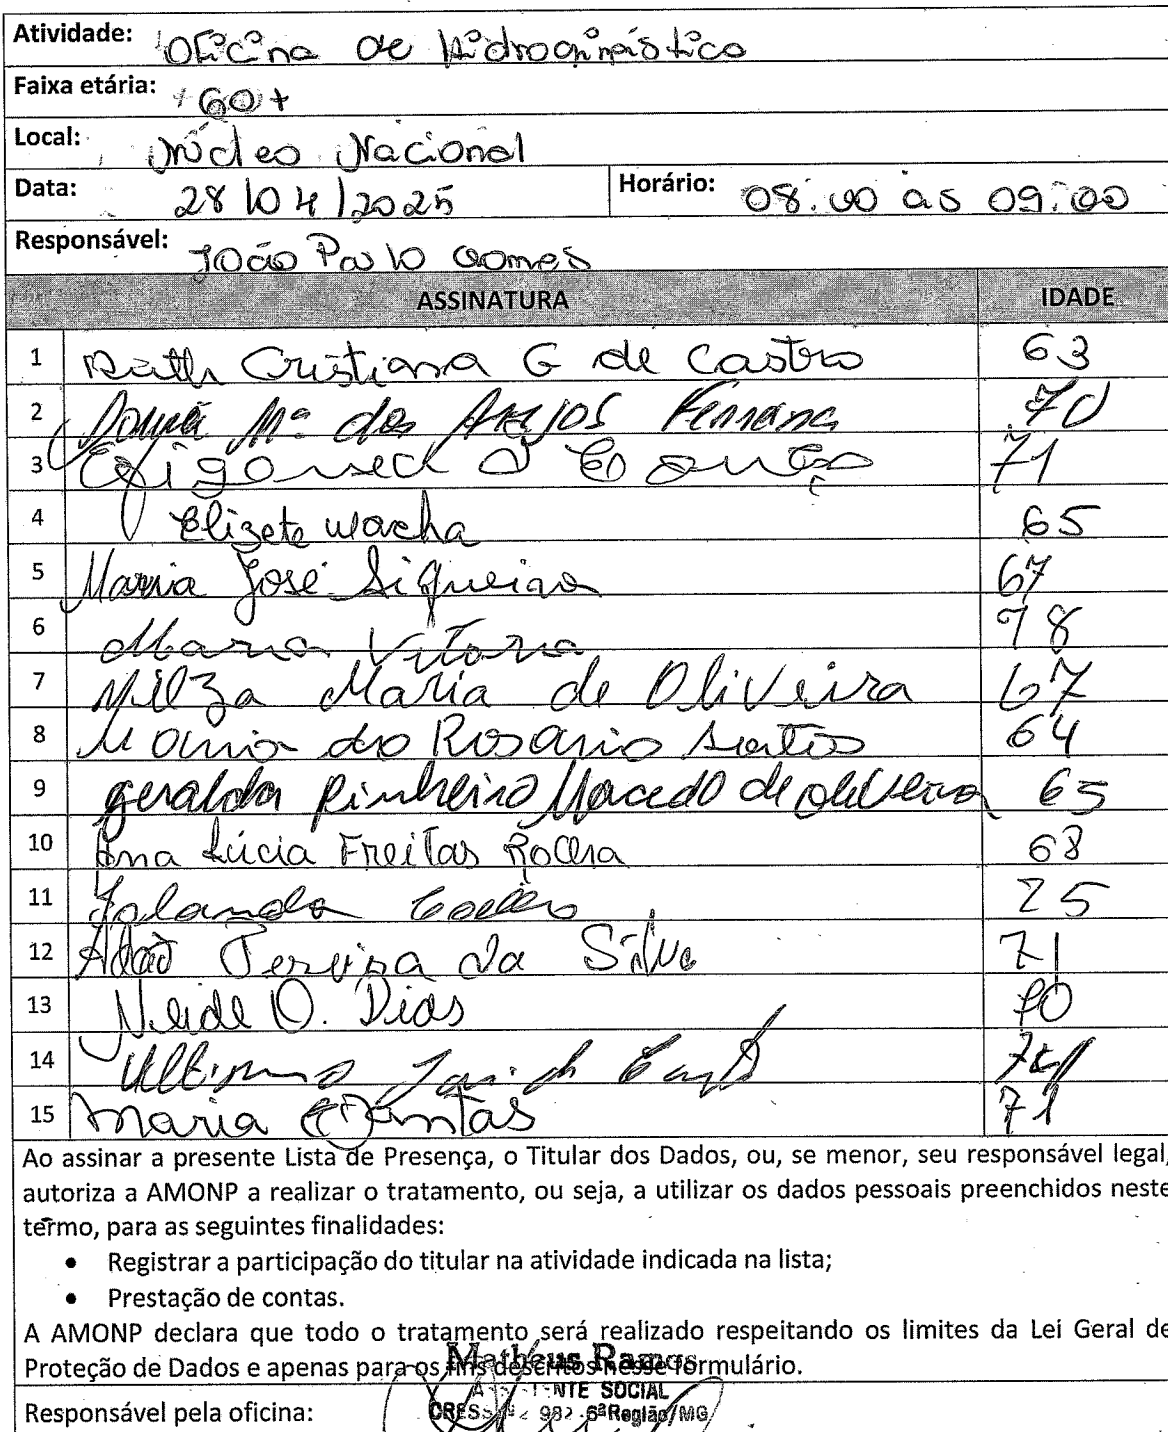 Atividade: Oficina de Hidroginástica
Faixa etária: 60+
Local: Núcleo Nacional
Data: 28/04/2025 Horário: 08:00 as 09:00
Responsável: João Paulo Gomes
ASSINATURA IDADE
1 Ruth Cristiana G de Castro 63
2 Mª dos Anjos 70
3 71
4 Elizete 65
5 Maria José Siqueira 67
6 Maria Vitoria 78
7 Nilza Maria de Oliveira 67
8 Maria do Rosario Santos 64
9 geralda Pinheiro Macedo de oliveira 65
10 Ana Lúcia Freitas Rocha 68
11 Yolanda Coelho 75
12 Adão Pereira da Silva 71
13 Neide O. Dias 70
14
15 Maria Dantas 71
Ao assinar a presente Lista de Presença, o Titular dos Dados, ou, se menor, seu responsável legal,
autoriza a AMONP a realizar o tratamento, ou seja, a utilizar os dados pessoais preenchidos neste
termo, para as seguintes finalidades:
• Registrar a participação do titular na atividade indicada na lista;
• Prestação de contas.
A AMONP declara que todo o tratamento será realizado respeitando os limites da Lei Geral de
Proteção de Dados e apenas para os fins descritos nesse formulário.
Matheus Ramos
SOCIAL
CRESS 6ª Região/MG
Responsável pela oficina: